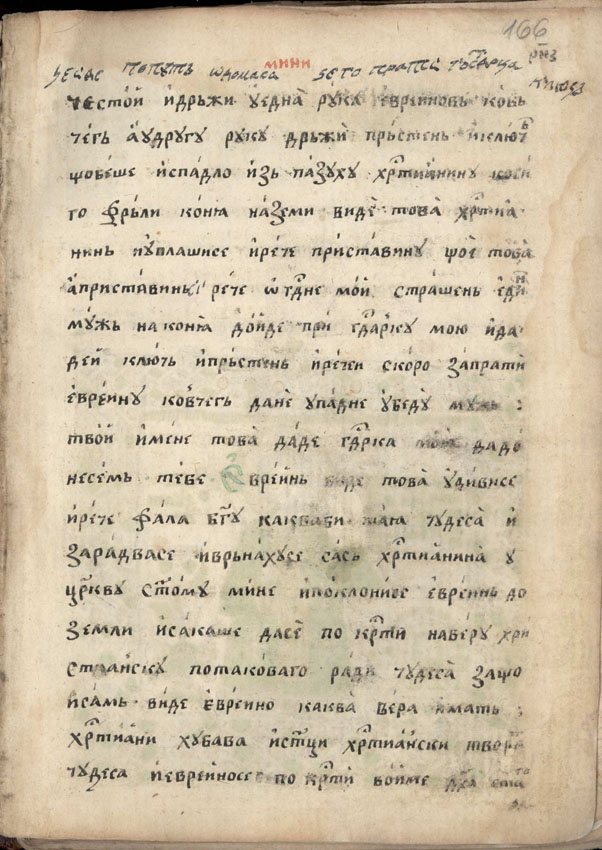 166
мини
че́стⷭ҇ой и҆дръ́жи ꙋ҆една̀ рꙋка є҆вреи҆новъ ковь
чегъ а҆ꙋдрꙋгꙋ рꙋкꙋ дръ́жи пръ́стень и҆ключ
що́беше и҆спа́дло и҆зь па́зꙋхꙋ хрⷭ҇тиꙗнинꙋ коси
го фръ́ли конꙗ на́земи видѐ това̀ хрⷭ҇тиꙗ
нинь и҆ꙋплашисе и҆ре́че приста́винꙋ що̀є това̀
а҆приста́винь рече ѿ гдⷭ҇не мо́й стра́шень еди
мꙋ́жь на конꙗ до́йде при гдⷭ҇а́ркꙋ мою и҆да
дей ключь и҆пръ́стень и҆рече скоро за́прати
е҆вреи҆нꙋ ковчегь данѐ ꙋпа́дне ꙋбедꙋ мꙋжь :
тво́й и҆мене това̀ да́де гдⷭ҇рка моꙗ дадо
несемь тебе е҆врейнь виде това̀ ꙋди́висе
и҆ре́че фа́ла бг҃ꙋ какваби чꙋдеса̀ и҆
зара́двасе и҆врьнахꙋсе сась хрⷭ҇тиꙗнина ꙋ
црⷭ҇квꙋ ст҃омꙋ ми́не и҆поклонисе е҆вреинь до
земли и҆сакаше дасѐ по крⷭ҇ти наверꙋ хри
стиа́нскꙋ потаковаго ради чꙋдеса̀ защо
и҆самь виде е҆вреино каква̀ вера и҆мать :
хрⷭ҇тиꙗни хꙋбава и҆стⷭ҇ци хрⷭ҇тиꙗнски твор
чꙋдеса и҆евреиносе по крⷭ҇ти во́име